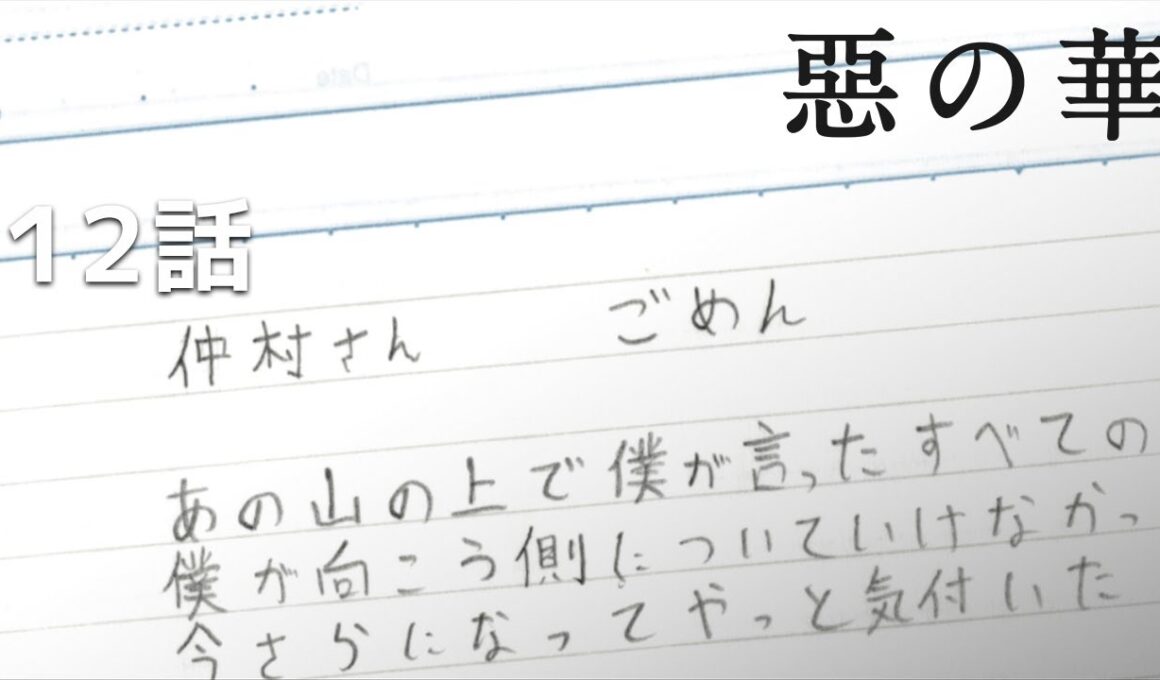 惡の華
12話
仲村さん　ごめん
あの山の上で僕が言ったすべての
僕が向こう側についていけなかっ
今さらになってやっと気付いた